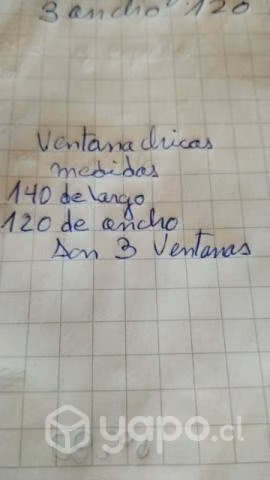 3 ancho 120
Ventana chicas
medidas
140 de largo
120 de ancho
son 3 Ventanas
yapo.cl